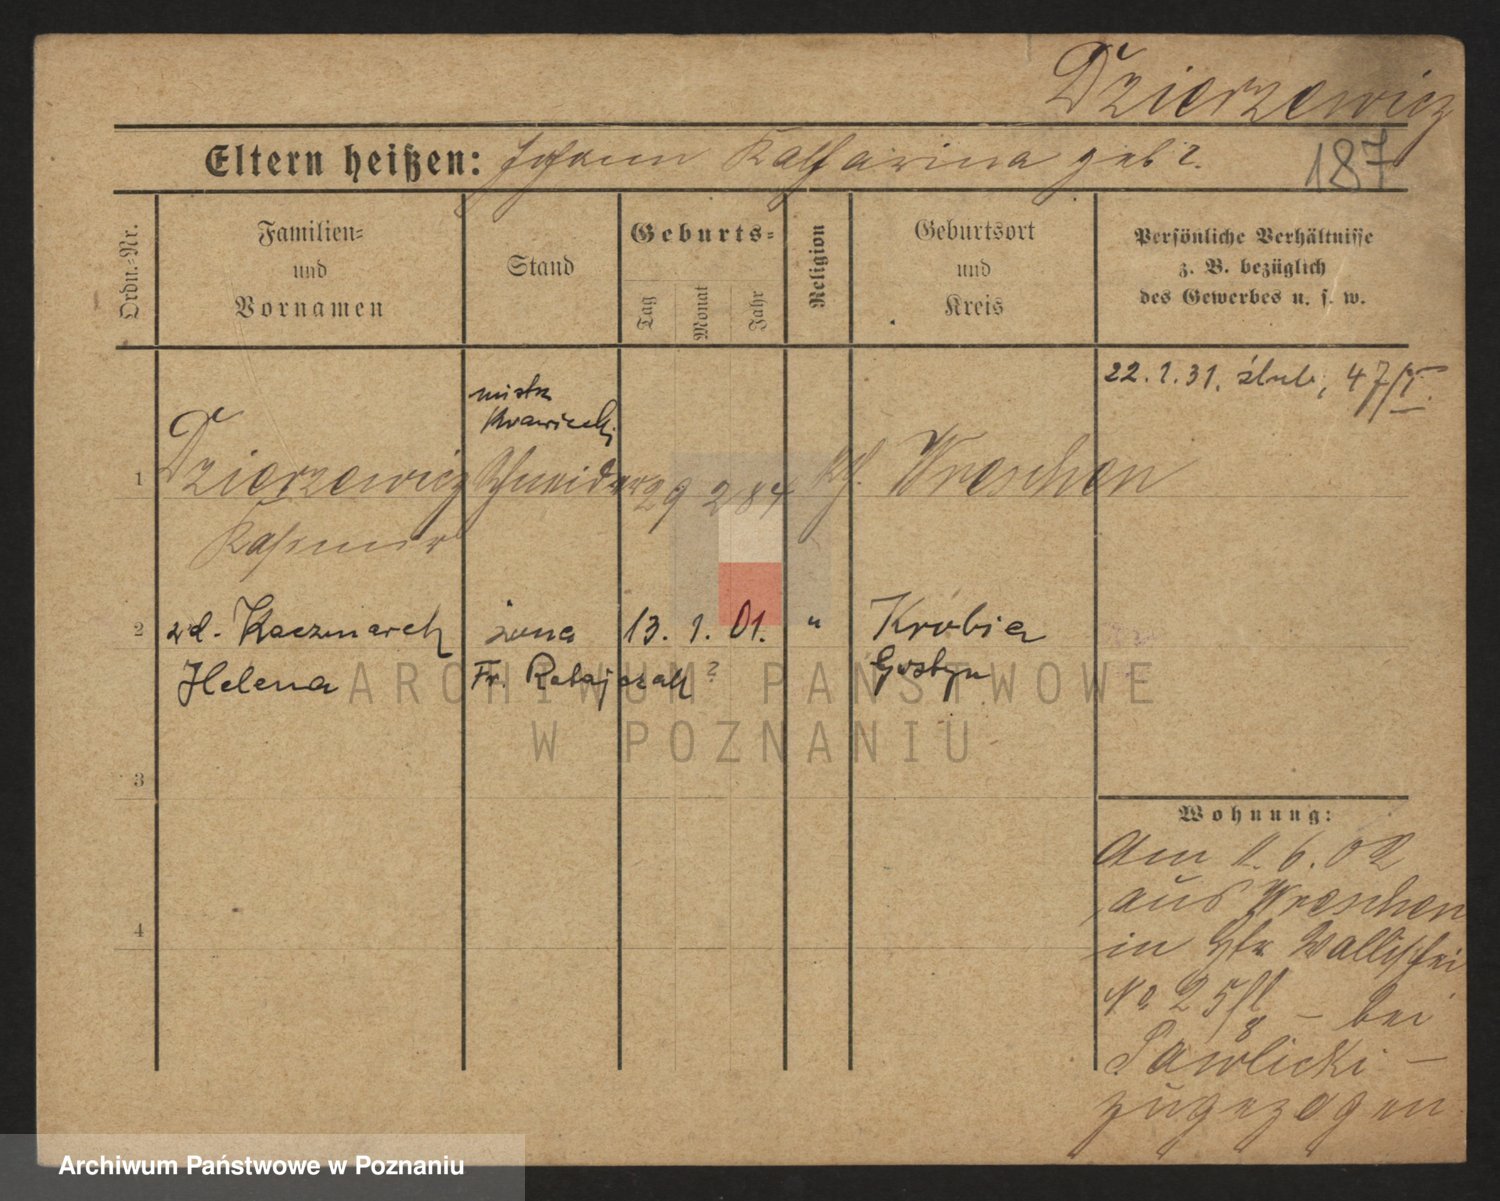 Dzierzewicz
Eltern heißen: Johann Katharina geb ?.
187
Ordn.-Nr.
Familien-
und
Vornamen
Stand
Geburts-
Tag
Monat
Jahr
Religion
Geburtsort
und
Kreis
Persönliche Verhältnisse
z. B. bezüglich
des Gewerbes u. s. w.
22. 1. 31. ślub, 47/I.
mistrz
krawiecki
1 Dzierzewicz Schneider 29 2 84 kth. Wreschen
Kasimir
2 zd. Kaczmarek żona 13. 1. 01. " Krobia
Helena Fr. Ratajczak ? Gostyn
3
4
Wohnung:
Am 11.6.02
aus Wreschen
in hfr Wallischei
No 25/II
– bei
Pawlicki –
zugezogen
ARCHIWUM PAŃSTWOWE
W POZNANIU
Archiwum Państwowe w Poznaniu